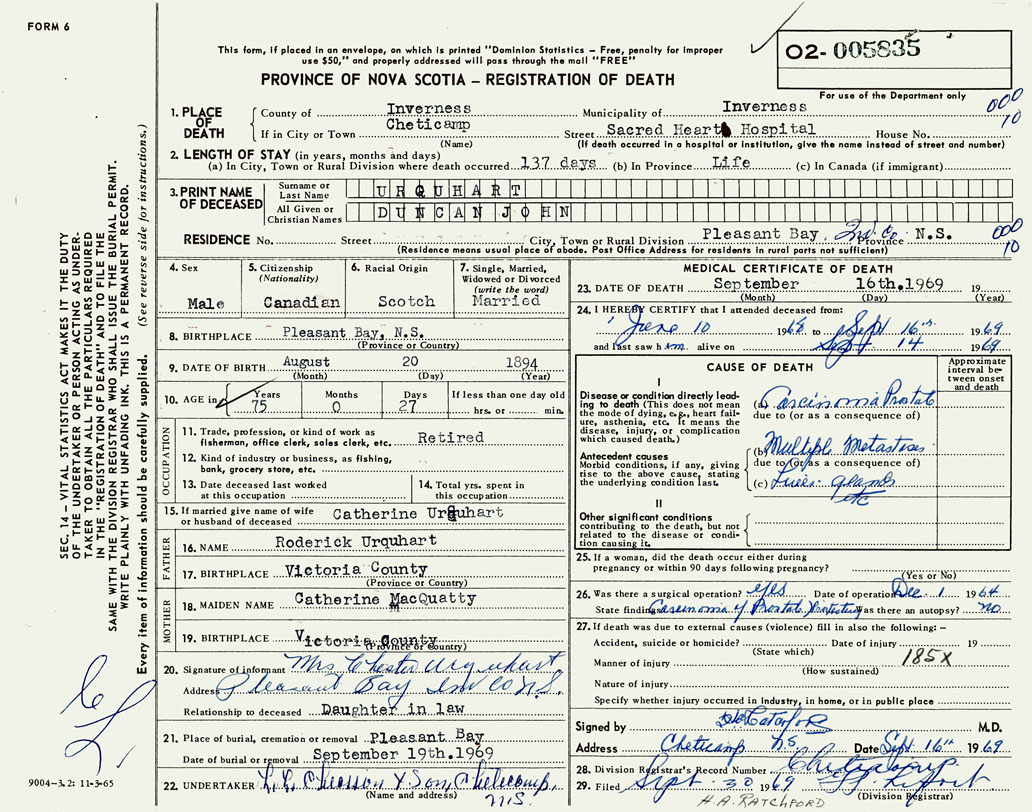 FORM 6
This form, if placed in an envelope, on which is printed "Dominion Statistics – Free, penalty for improper
use $50," and properly addressed will pass through the mail "FREE"
PROVINCE OF NOVA SCOTIA – REGISTRATION OF DEATH
02-005835
For use of the Department only
000
10
1. PLACE OF DEATH
County of Inverness Municipality of Inverness
If in City or Town Cheticamp Street Sacred Heart Hospital House No.
(Name) (If death occurred in a hospital or institution, give the name instead of street and number)
2. LENGTH OF STAY (in years, months and days)
(a) In City, Town or Rural Division where death occurred 137 days (b) In Province Life (c) In Canada (if immigrant)
3. PRINT NAME OF DECEASED
Surname or Last Name URQUHART
All Given or Christian Names DUNCAN JOHN
RESIDENCE No. Street City, Town or Rural Division Pleasant Bay, Inv. Co. Province N.S.
(Residence means usual place of abode. Post Office Address for residents in rural parts not sufficient)
000
10
4. Sex Male
5. Citizenship (Nationality) Canadian
6. Racial Origin Scotch
7. Single, Married, Widowed or Divorced (write the word) Married
8. BIRTHPLACE Pleasant Bay, N.S.
(Province or Country)
9. DATE OF BIRTH August 20 1894
(Month) (Day) (Year)
10. AGE in Years 75 Months 0 Days 27 If less than one day old hrs. or min.
OCCUPATION
11. Trade, profession, or kind of work as fisherman, office clerk, sales clerk, etc. Retired
12. Kind of industry or business, as fishing, bank, grocery store, etc.
13. Date deceased last worked at this occupation
14. Total yrs. spent in this occupation
15. If married give name of wife or husband of deceased Catherine Urquhart
FATHER
16. NAME Roderick Urquhart
17. BIRTHPLACE Victoria County
(Province or Country)
MOTHER
18. MAIDEN NAME Catherine MacQuatty
19. BIRTHPLACE Victoria County
(Province or Country)
20. Signature of informant Mrs Chester Urquhart
Address Pleasant Bay Inv Co N.S.
Relationship to deceased Daughter in law
21. Place of burial, cremation or removal Pleasant Bay
Date of burial or removal September 19th.1969
22. UNDERTAKER & Son, Cheticamp,
N.S.
(Name and address)
MEDICAL CERTIFICATE OF DEATH
23. DATE OF DEATH September 16th.1969 19
(Month) (Day) (Year)
24. I HEREBY CERTIFY that I attended deceased from:
June 10 1968 to Sept 16th 1969
and last saw him alive on Sept 14 1969
CAUSE OF DEATH
Approximate interval between onset and death
I
Disease or condition directly leading to death (This does not mean the mode of dying, e.g., heart failure, asthenia, etc. It means the disease, injury, or complication which caused death.)
(a) Carcinoma Prostate
due to (or as a consequence of)
Antecedent causes
Morbid conditions, if any, giving rise to the above cause, stating the underlying condition last.
(b) Multiple Metastases
due to (or as a consequence of)
(c) Liver - glands
etc
II
Other significant conditions
contributing to the death, but not related to the disease or condition causing it.
25. If a woman, did the death occur either during pregnancy or within 90 days following pregnancy?
(Yes or No)
26. Was there a surgical operation? yes Date of operation Dec. 1 1964
State findings Carcinoma of Prostate Was there an autopsy? no
27. If death was due to external causes (violence) fill in also the following: –
Accident, suicide or homicide? Date of injury 19
(State which)
Manner of injury 185X
(How sustained)
Nature of injury
Specify whether injury occurred in industry, in home, or in public place
Signed by M.D.
Address Cheticamp N.S. Date Sept 16th 1969
28. Division Registrar's Record Number Cheticamp
29. Filed Sept. 30 1969
(Division Registrar)
H.A. RATCHFORD
SEC. 14 – VITAL STATISTICS ACT MAKES IT THE DUTY
OF THE UNDERTAKER OR PERSON ACTING AS UNDER-
TAKER TO OBTAIN ALL THE PARTICULARS REQUIRED
IN THE "REGISTRATION OF DEATH" AND TO FILE THE
SAME WITH THE DIVISION REGISTRAR WHO SHALL ISSUE THE BURIAL PERMIT.
WRITE PLAINLY WITH UNFADING INK. THIS IS A PERMANENT RECORD.
Every item of information should be carefully supplied. (See reverse side for instructions.)
9004-3.2: 11-3-65